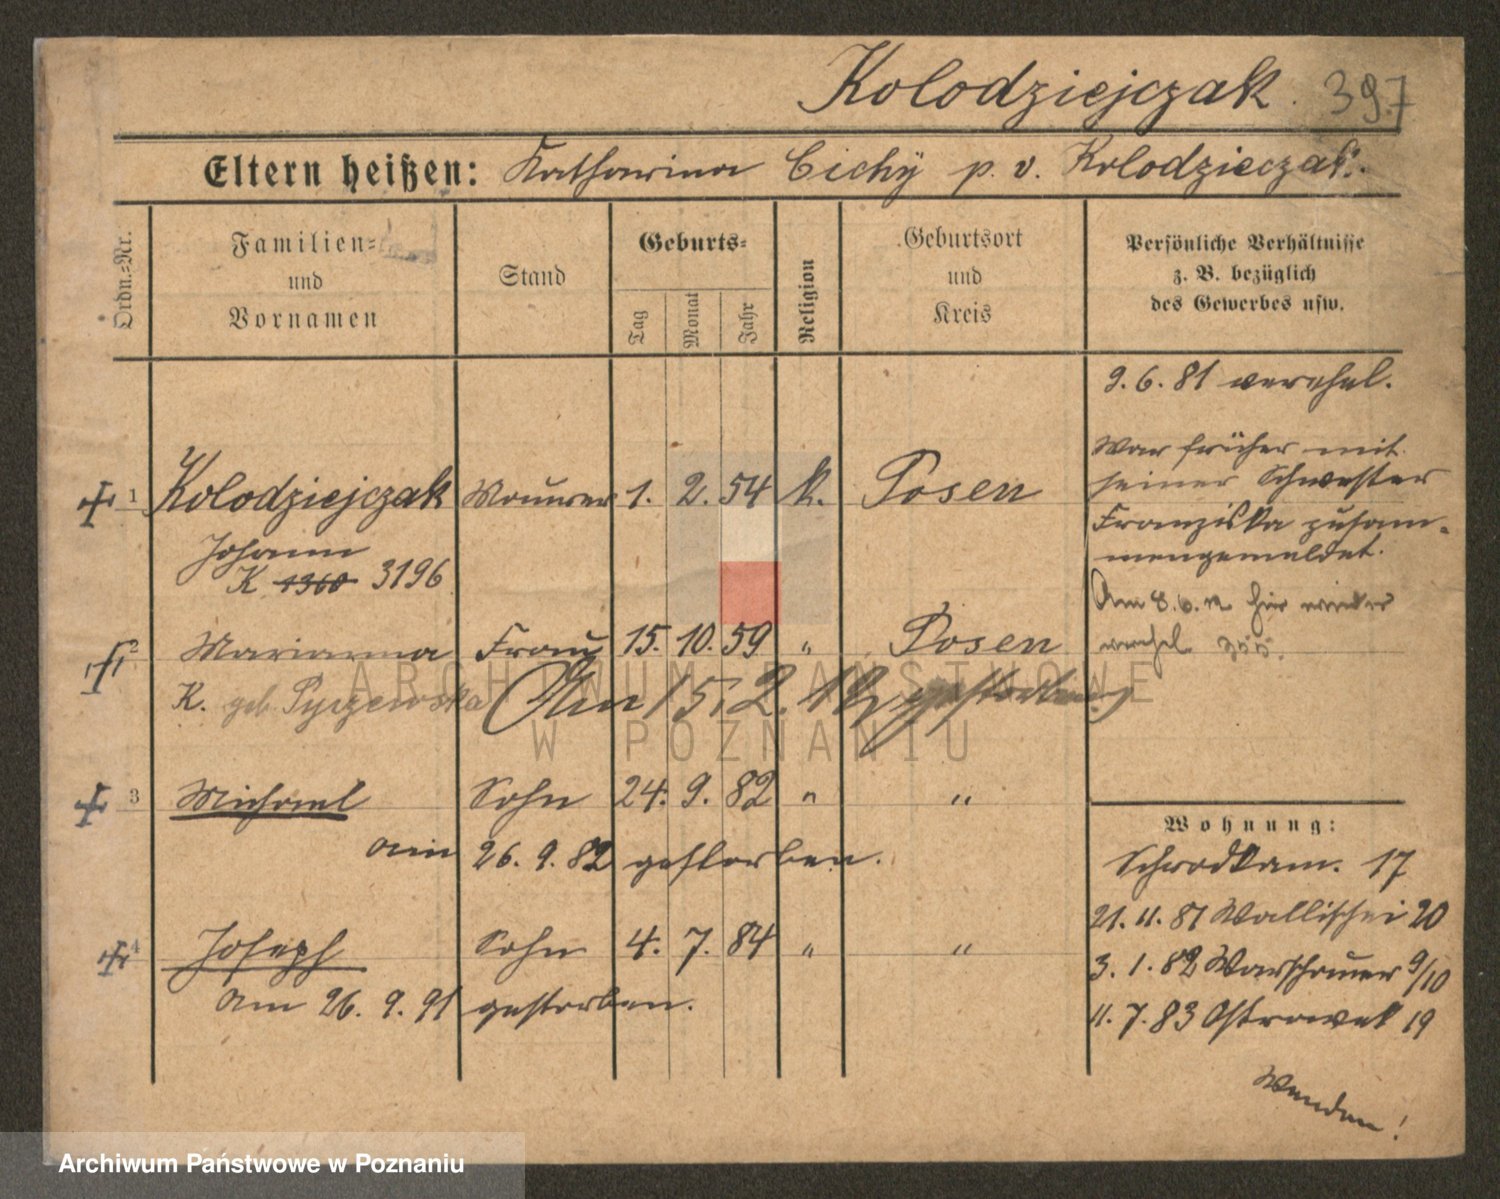 Kolodziejczak. 397
Eltern heißen: Katharina Cichÿ p. v. Kolodzieczak.
Ordn.-Nr.
Familien-
und
Vornamen
Stand
Geburts-
Tag
Monat
Jahr
Religion
Geburtsort
und
Kreis
Persönliche Verhältnisse
z. B. bezüglich
des Gewerbes usw.
9. 6. 81 verehel.
War früher mit
seiner Schwester
Franziska zusam-
mengemeldet.
Am 8. 6. 12 hier wieder
verehel. 355.
1 Kolodziejczak Maurer 1. 2. 54 k. Posen
Johann
K 1360 3196
2 Marianna Frau 15. 10. 59 " Posen
K. geb Pyszewska Am 15. 2. 12 gestorben
3 Michael Sohn 24. 9. 82 " "
am 26. 9. 82 gestorben.
4 Joseph Sohn 4. 7. 84 " "
Am 26. 9. 91 gestorben.
Wohnung:
Schrodkam. 17
21. 11. 81 Wallischei 20
3. 1. 82 Warschauer 9/10
11. 7. 83 Ostrowek 19
Wenden!
ARCHIWUM PAŃSTWOWE
W POZNANIU
Archiwum Państwowe w Poznaniu